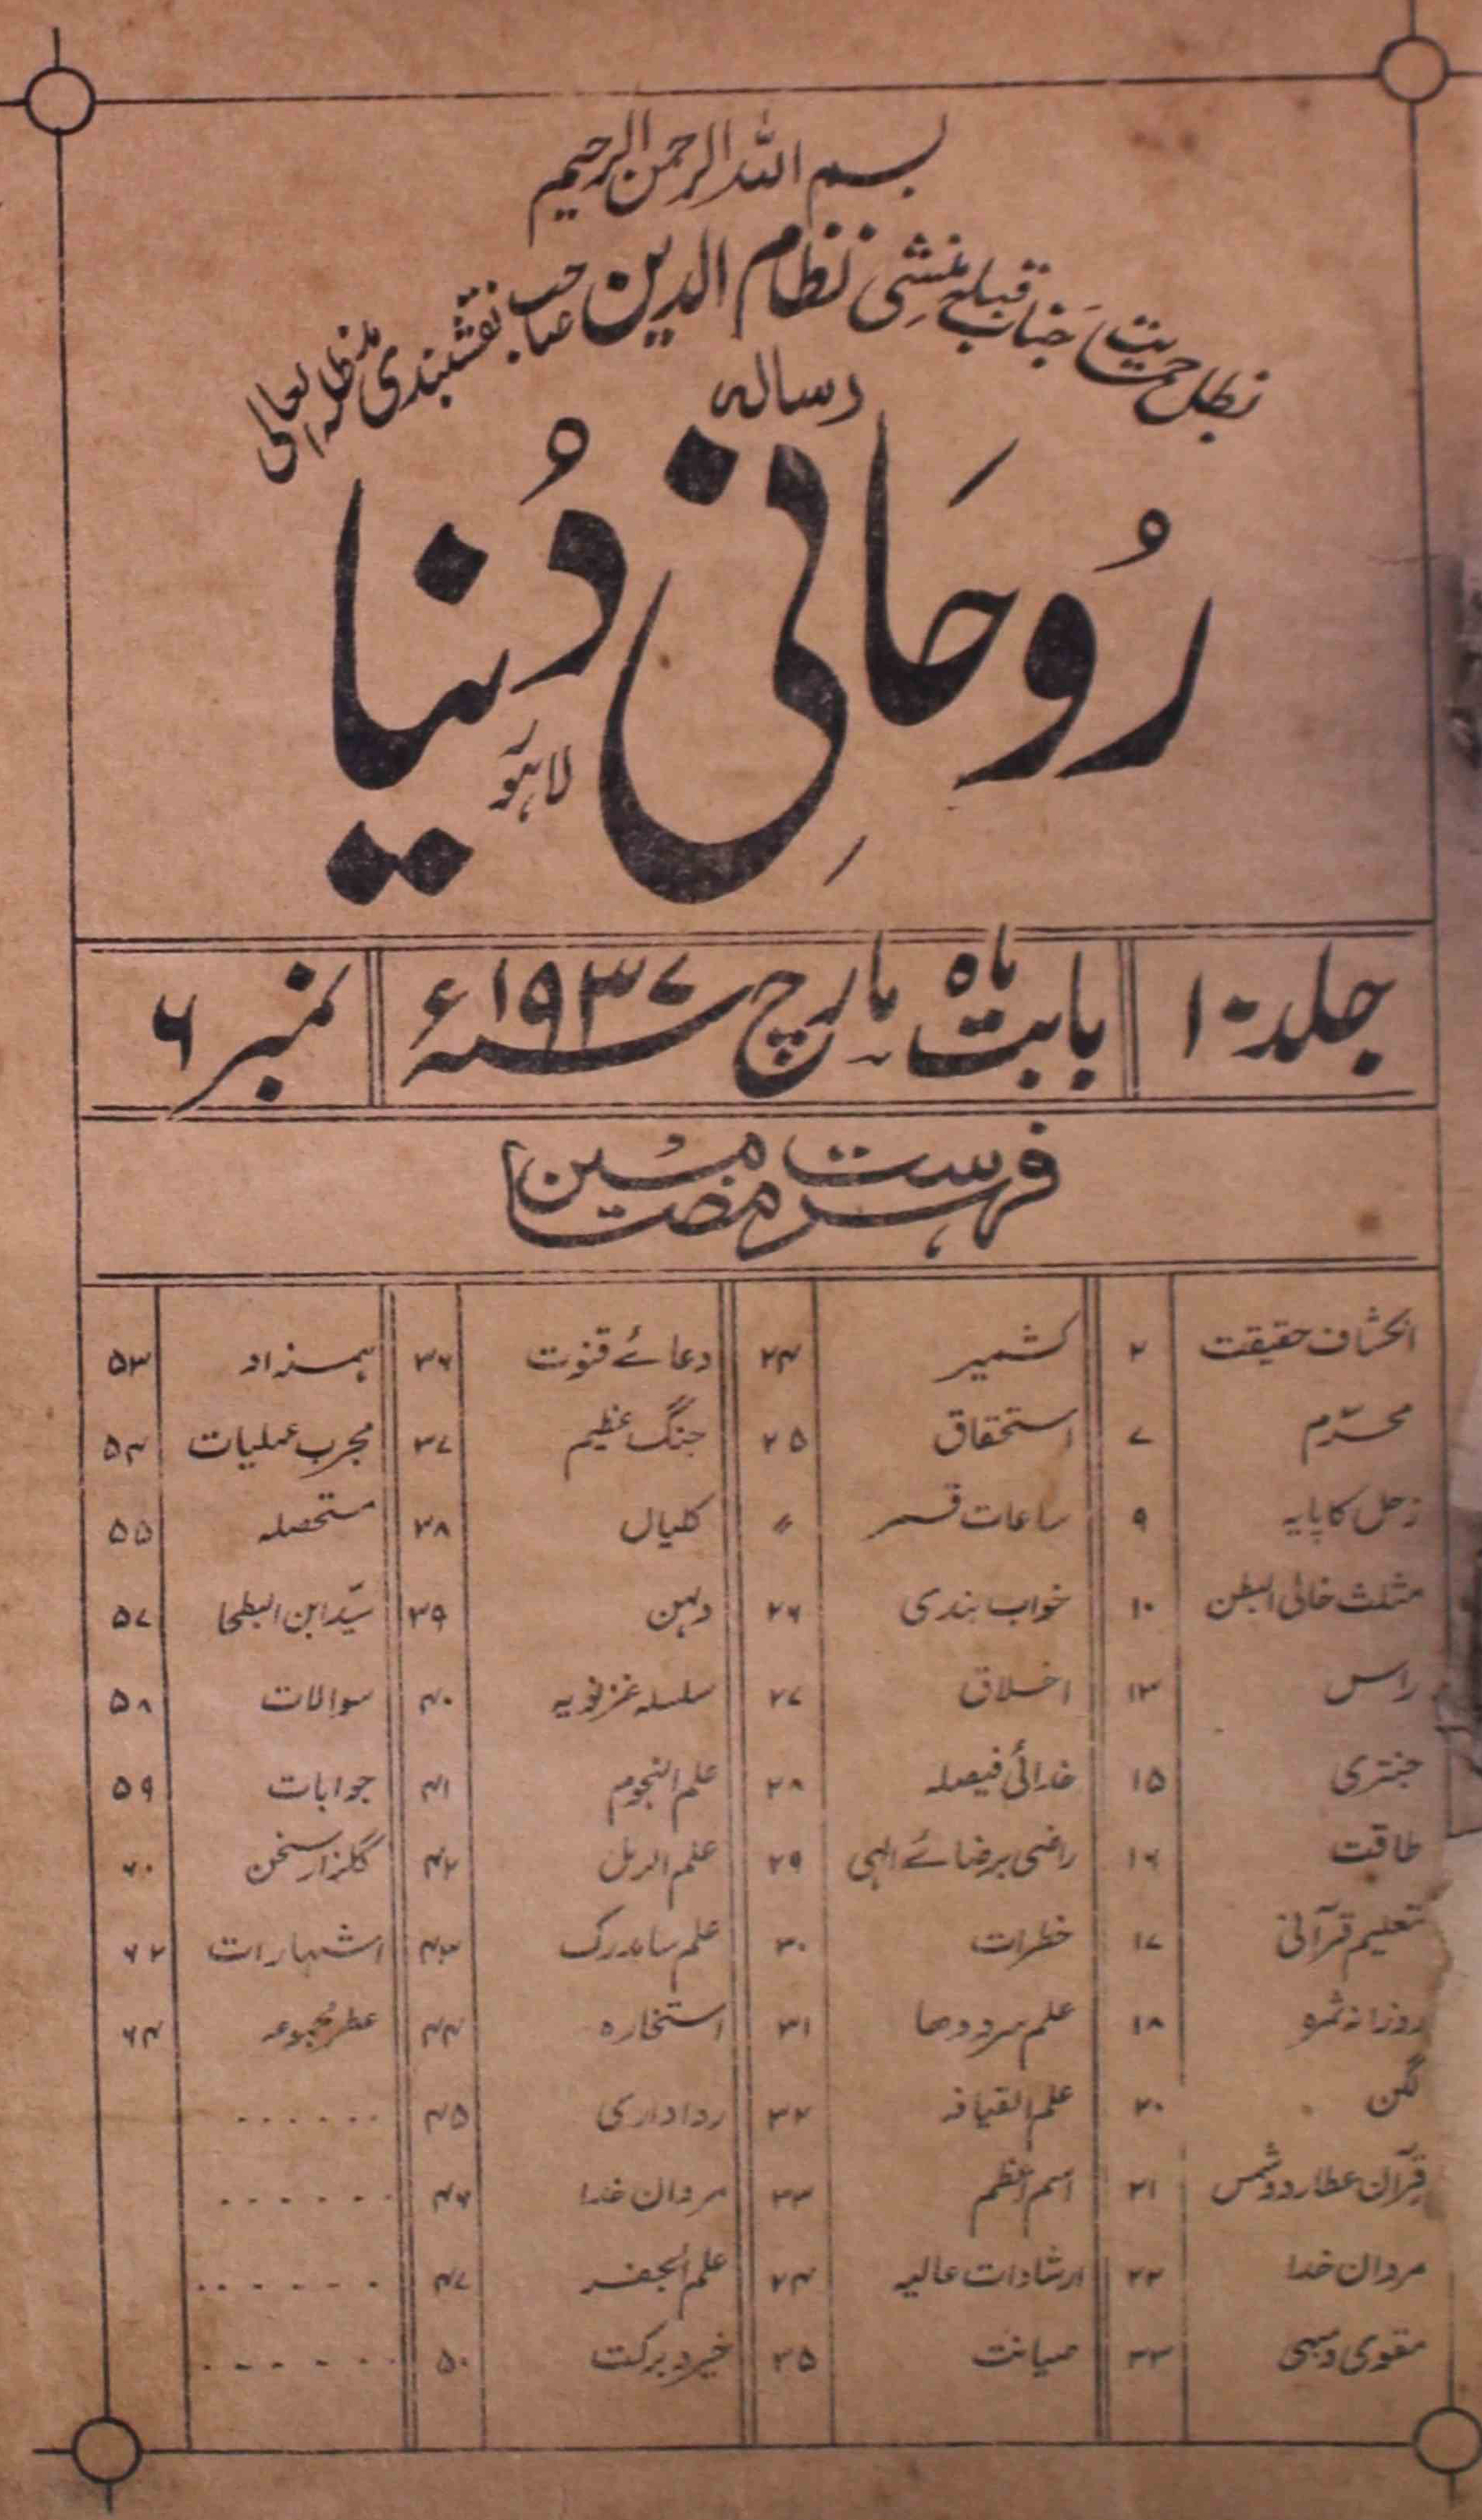 بسم اللہ الرحمن الرحیم
بظل حمایت جناب قبلہ منشی نظام الدین صاحب نقشبندی مدظلہ العالی
رسالہ
رُوحَانیِ دُنیا
لاہور
جلد ۱۰ بابت ماہ مارچ ۱۹۳۷ء نمبر ۶
فہرست مضامین
انکشاف حقیقت ۲ کشمیر ۲۴ دعائے قنوت ۳۶ ہمزاد ۵۳
محرّم ۷ استحقاق ۲۵ جنگ عظیم ۳۷ مجرب عملیات ۵۴
زحل کا پایہ ۹ ساعات قمر 〃 کلیال ۳۸ مستحصلہ ۵۵
مثلث خالی البطن ۱۰ خواب بندی ۲۶ دلہن ۳۹ سیّد ابن البطحا ۵۷
راس ۱۳ اخلاق ۲۷ سلسلہ غزنویہ ۴۰ سوالات ۵۸
جنتری ۱۵ خدائی فیصلہ ۲۸ علم النجوم ۴۱ جوابات ۵۹
طاقت ۱۶ راضی برضائے الہی ۲۹ علم الرمل ۴۲ گلزار سخن ۶۰
تعلیم قرآنی ۱۷ خطرات ۳۰ علم سامدرک ۴۳ اشتہارات ۶۲
روزانہ ثمرہ ۱۸ علم سرودھا ۳۱ استخارہ ۴۴ عطر مجموعہ ۶۴
گہن ۲۰ علم القیافہ ۳۲ رواداری ۴۵ ......
قرآن عطارد و شمس ۲۱ اسم اعظم ۳۳ مردان خدا ۴۶ ......
مردان خدا ۲۲ ارشادات عالیہ ۳۴ علم الجفر ۴۷ ......
مقوی وہبی ۲۳ صیانت ۳۵ خیر و برکت ۵۰ ......